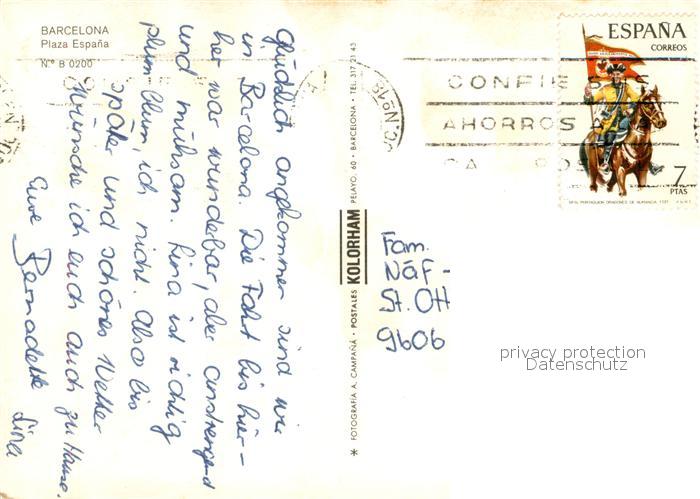 BARCELONA
Plaza España
N.º B 0200
Glücklich angekommen sind wir
in Barcelona. Die Fahrt bis hier-
her war wundebar, aber anstrengend
und mühsam. Lina ist richtig
ich nicht. Also bis
später und schönes Wetter
wünsche ich euch auch zu Hause.
Eure Bernadette
Lina
* FOTOGRAFIA A. CAMPAÑÁ · POSTALES KOLORHAM PELAYO, 60 · BARCELONA · TEL. 317 21 43
ESPAÑA
CORREOS
7
PTAS
CONFIE
AHORROS A
CA
Fam.
Näf-
St. Ott
9606
privacy protection
Datenschutz